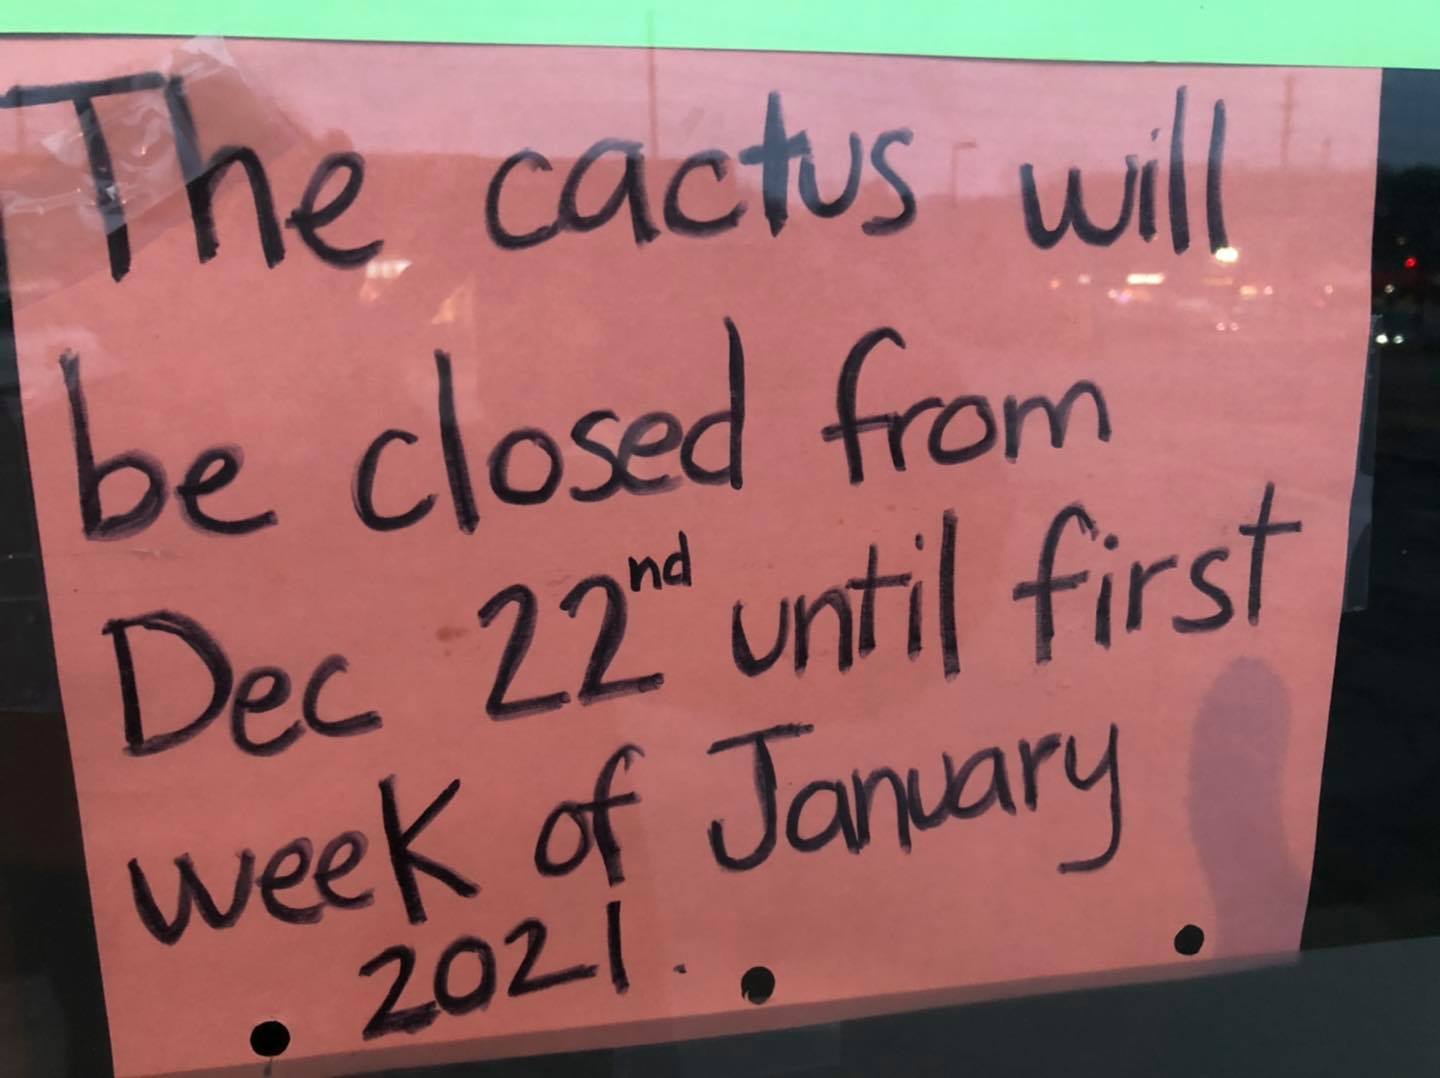 The cactus will
be closed from
Dec 22nd until first
week of January
2021.